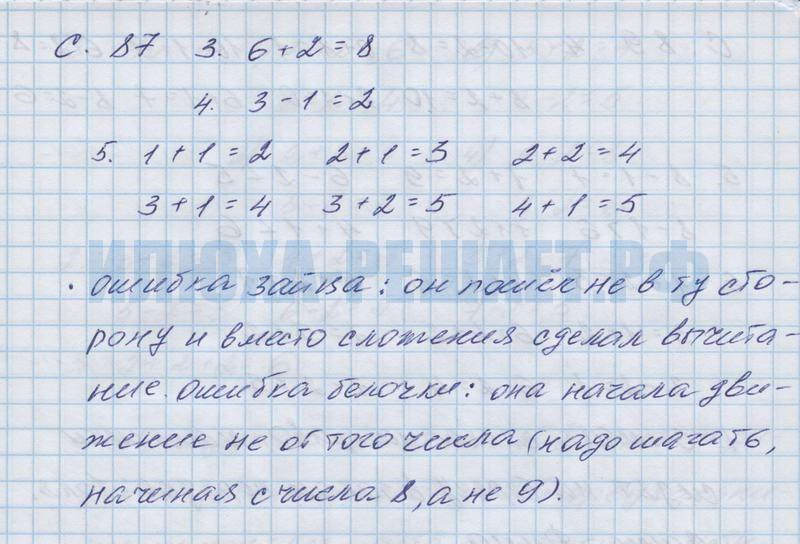 С. 87 3. 6+2=8
4. 3-1=2
5. 1+1=2 2+1=3 2+2=4
3+1=4 3+2=5 4+1=5
ИЛЮХА-РЕШАЕТ.РФ
· ошибка зайца: он пошёл не в ту сто-
рону и вместо сложения сделал вычита-
ние. ошибка белочки: она начала дви-
жение не от того числа (надо шагать,
начиная с числа 8, а не 9).